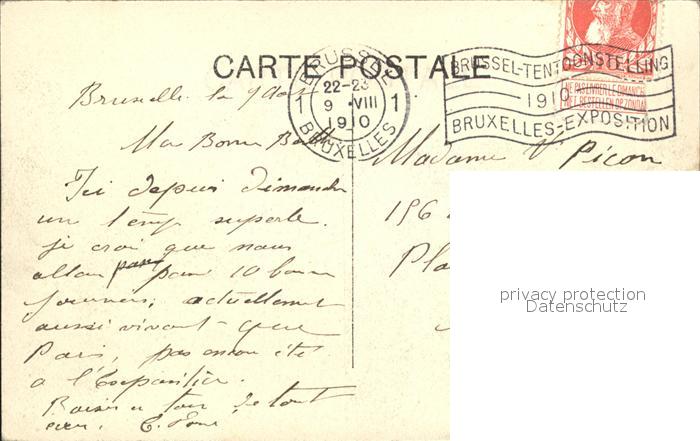 CARTE POSTALE
BRUSSEL
22-23
1 9 VIII 1
1910
BRUXELLES
BRUSSEL-TENTOONSTELLING
1910
BRUXELLES-EXPOSITION
NE PAS LIVRER LE DIMANCHE
NIET BESTELLEN OP ZONDAG
Bruxelle le 9 Aout
Ma Bonne
Ici depuis dimanche
un temps superbe.
je croi que nous
allon pour 10 bonne
journées, actuellement
aussi vivant que
Paris, pas encore été
a l'Exposition.
Baiser a tous de tout
cœur.
Madame Vve Picon
196
Pla
privacy protection
Datenschutz